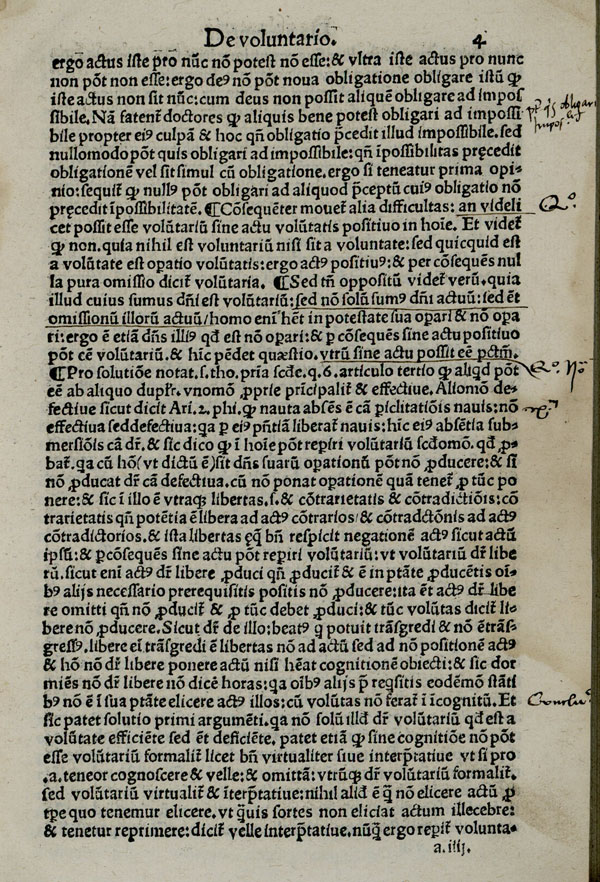 De voluntario. 4
ergo actus iste pro nūc nō potest nō esse: & vltra iste actus pro nunc
non pōt non esse: ergo deꝰ nō pōt noua obligatione obligare istū ꝙ
iste actus non sit nūc: cum deus non possit aliquē obligare ad impos
sibile. Nā fatent̄ doctores ꝙ aliquis bene potest obligari ad impossi
bile propter eiꝰ culpā & hoc qn̄ obligatio p̄cedit illud impossibile. sed
nullomodo pōt quis obligari ad impossibile: qn̄ īpossibilitas pręcedit
obligationē vel sit simul cū obligatione. ergo si teneatur prima opi-
nio: sequit̄ ꝙ nullꝰ pōt obligari ad aliquod p̄ceptū cuiꝰ obligatio nō
pręcedit īpossibilitatē. ¶Cōsequēter mouet̄ alia difficultas: an videli
cet possit esse volūtariū sine actu volūtatis positiuo in hoīe. Et videt̄
ꝙ non. quia nihil est voluntariū nisi sit a voluntate: sed quicquid est
a volūtate est opatio volūtatis: ergo actꝰ positiuꝰ: & per cōsequēs nul
la pura omissio dicit̄ voluntaria. ¶Sed tn̄ oppositū videt̄ verū. quia
illud cuius sumus dn̄i est volūtariū: sed nō solū sumꝰ dn̄i actuū: sed ēt
omissionū illorū actuū/homo enī hēt in potestate sua opari & nō opa
ri: ergo ē etiā dn̄s illiꝰ qd̄ est nō opari: & p cōsequēs sine actu positiuo
pōt cē volūtariū. & hīc pēdet quæstio. vtrū sine actu possit eē pctm̄.
¶Pro solutiōe notat. s. tho. pria scd̄e. q. 6. articulo tertio ꝙ aliqd pōt
eē ab aliquo duplr̄. vnomō ꝓprie prīcipalit̄ & effectiue. Aliomō de-
fectiue sicut dicit Ari. 2. phi. ꝙ nauta absēs ē cā piclitatiōis nauis: nō
effectiua sed defectiua: qa p eiꝰ pn̄tiā liberat̄ nauis: hīc eiꝰ absētia sub-
mersiōis cā dr̄. & sic dico ꝙ ī hoīe pōt repiri volūtariū scd̄omō. qd̄ ꝓ-
bat̄. qa cū hō (vt dictū ē) sit dn̄s suarū opationū pōt nō ꝓducere: & si
nō ꝓducat dr̄ cā defectiua. cū nō ponat opationē quā tenet̄ ꝓ tūc po
nere: & sic ī illo ē vtraqꝫ libertas. s. & cōtrarietatis & cōtradictiōis: cō
trarietatis qn̄ potētia ē libera ad actꝰ cōtrarios/& cōtradctōnis ad actꝰ
cōtradictorios. & ista libertas ęq̄ bn̄ respicit negationē actꝰ sicut actū
ipsū: & p cōsequēs sine actu pōt repiri volūtariū: vt volūtariū dr̄ libe
rū. sicut enī actꝰ dr̄ libere ꝓduci qn̄ ꝓducit̄ & ē in ptāte ꝓducētis oī-
bꝰ alijs necessario prerequisitis positis nō ꝓducere: ita ēt actꝰ dr̄ libe
re omitti qn̄ nō ꝓducit̄ & ꝓ tūc debet ꝓduci: & tūc volūtas dicit̄ li-
bere nō ꝓducere. Sicut dr̄ de illo: beatꝰ q̄ potuit trāsgredi & nō ē trāsg-
gressꝰ. libere eī trāsgredi ē libertas nō ad actū sed ad nō positionē actꝰ
& hō nō dr̄ libere ponere actū nisi hēat cognitionē obiecti: & sic dor
miēs nō dr̄ libere nō dicē horas: qa oībꝰ alijs p̄ reqsitis eodēmō stāti
bꝰ nō ē ī sua ptāte elicere actꝰ illos: cū volūtas nō ferat̄ ī īcognitū. Et
sic patet solutio primi argumēti. qa nō solū illd̄ dr̄ volūtariū qd̄ est a
volūtate efficiēte sed ēt deficiēte. patet etiā ꝙ sine cognitiōe nō pōt
esse volūtariū formalit̄ licet bn̄ virtualiter siue interp̄tatiue vt si pro
.a. teneor cognoscere & velle: & omittā: vtrūqꝫ dr̄ volūtariū formalit̄.
sed volūtariū virtualit̄ & īterp̄tatiue: nihil alid̄ ē q̄ nō elicere actū ꝓ
tp̄e quo tenemur elicere. vt q̄uis sortes non eliciat actum illecebre:
& tenetur reprimere: dicit̄ velle interp̄tatiue. nūq̄ ergo repit̄ volunta-
a. iiij.
obligari
Qº.
Qº. Nº
Conclu